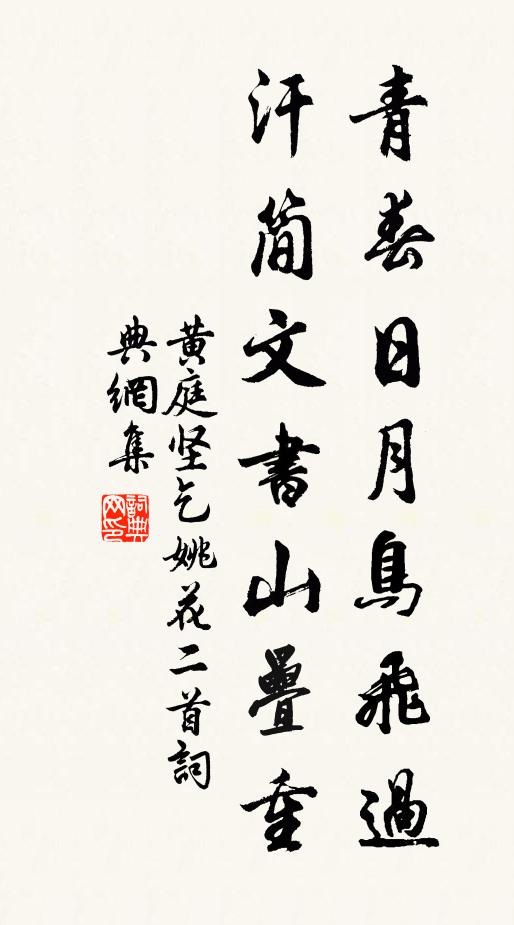 青春日月鳥飛過
汗簡文書山疊重
黄庭坚乞姚花二首詞
典網集
詞典网印